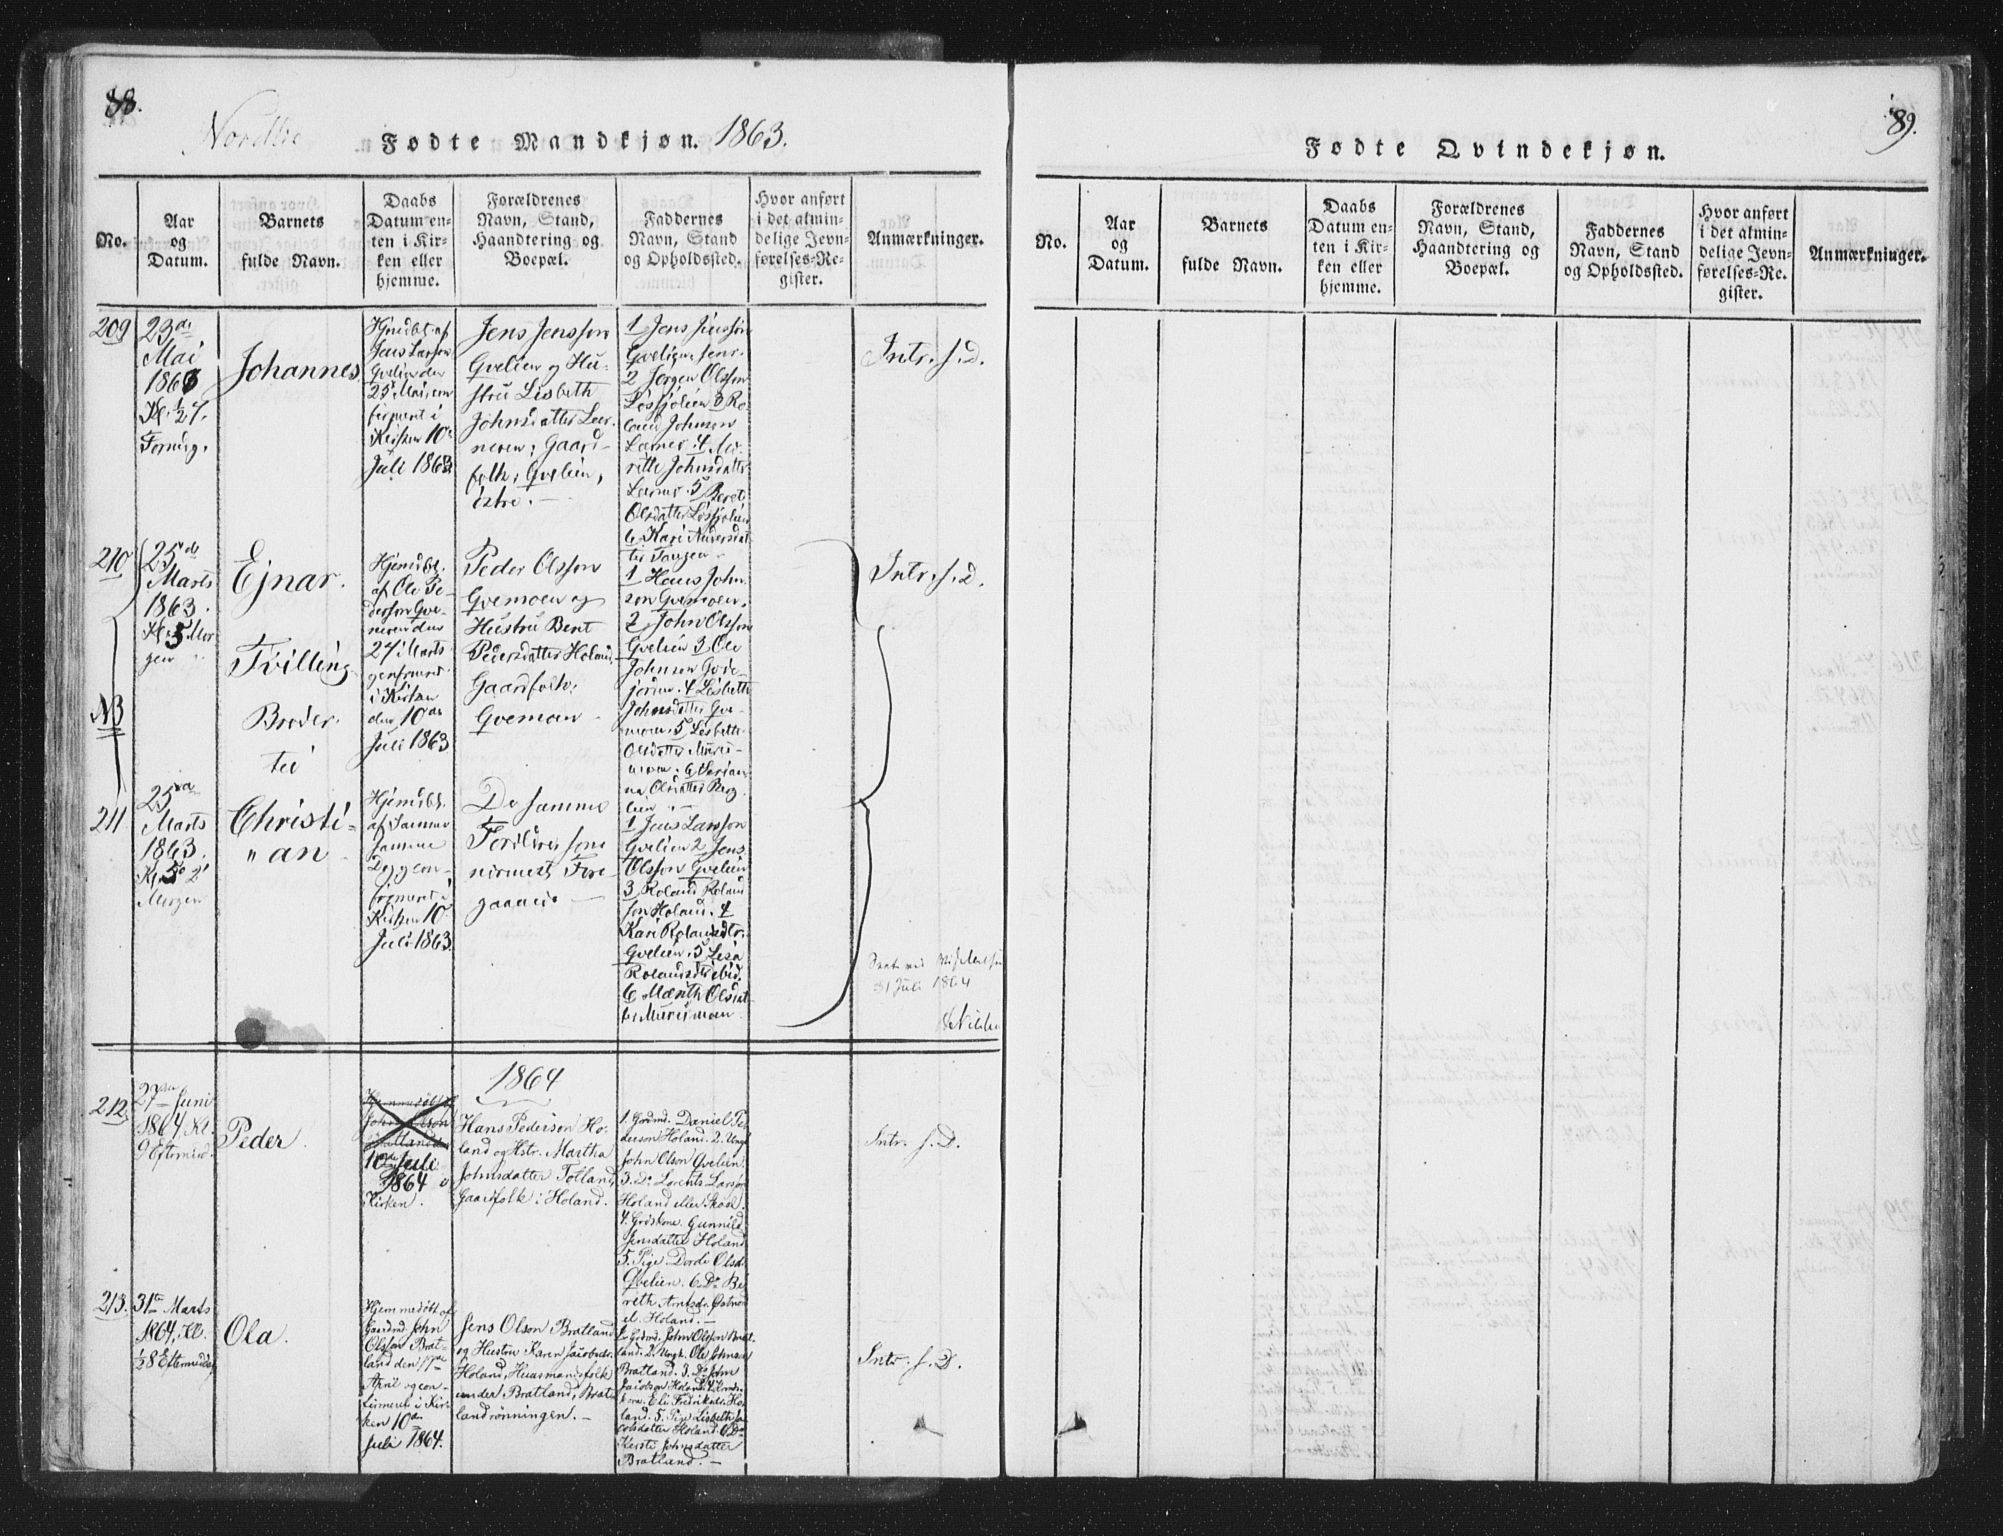 88.
Nordlie
Fødte Mandkjøn. 1863.
No.
Aar
og
Datum.
Barnets
fulde Navn.
Daabs
Datum en-
ten i Kir-
ken eller
hjemme.
Forældrenes
Navn, Stand,
Haandtering og
Boepæl.
Faddernes
Navn, Stand
og Opholdssted.
Hvor anført
i det almin-
delige Jevn-
førelses-Re-
gister.
Anmærkninger.
209
23de
Mai
1863
Kl. ½7.
Johannes
Jens Larson
Qvelien den
25 Mai, con
firmert i
Kirken 10de
Juli 1863
Jens Jensson
Qvelien og Hu-
stru Lisbeth
Johnsdatter Lær-
neren, Gaard-
folk, Qvelien,
østre. —
1 Jens Jensson
Qvelien, senr.
2 Jørgen Olsson
Løsfjolien 3 Ro-
land Johnson
Lærner 4 Me-
rethe Johnsdatter
Lærner. 5 Beret
Olsdatter Løsfjolien
6 Kari Andersdat-
ter Tangen
Intr. f. D.
210
25de
Marts
1863.
Kl. 5 Mor
gen
Ejnar.
Tvilling
Broder
til
Hjemdbt.
af Ole Pe-
dersson Qve-
moen den
27 Marts
i Kirken
den 10de
Juli 1863
Peder Olsson
Qvemoen og
Hustru Berit
Pedersdatter Holand
Gaardfolk,
Qvemoen
1 Hans John-
son Qvemoen.
2 John Olsson
Qvelien 3 Ole
Johnson
4 Lisbeth
Johnsdatter Qve-
moen, 5 Lisbeth
Olsdatter Muris-
moen. 6
Olsdatter Berg-
lien
Intr. f. D.
NB
211
25de
Marts
1863.
Kl. 5
Morgen
Christi-
" an
Hjemdbt.
af Samme
samme
Dag con-
firmert i
Kirken 10de
Juli 1863.
De samme
Forældre som
nærmest Fore-
gaaende —
1 Jens Larsson
Qvelien 2 Jens
Olsson Qvelien
3 Roland Roland
son Holand. 4
Kari Rolandsdtr.
Qvelien. 5 Lisa
Rolandsdtr ibid.
6 Mærith Olsdat-
ter Murismoen
31 Juli 1864
1864
212.
27de Juni
1864 Kl.
9 Eftermid.
Peder.
Hjemmedøbt af
John Olson
Bratland
10de Juli
1864 i
Kirken.
Hans Pederson Ho-
land og Hstr. Martha
Johnsdatter Tolland
Gaardfolk i Holand.
1. Grdmd. Daniel Pe-
derson Holand. 2. Ungk.
John Olson Qvelien.
3. Do Lorents Larson
Holand eller Skole.
4. Grdkone. Gunnild
Jensdatter Holand
5. Pige Dorde Olsd.
Qvelien. 6. Do Be-
reth Arntsdr.
Holand. —
Intr. f. D.
213.
31te Marts
1864, Kl.
½8 Eftermiddag
Ola.
Hjemmedøbt af
Gaardmd. John
Olsson Brat-
land den 17de
April og con-
firmeret i Kir-
ken 10de
Juli 1864.
Jens Olson Bratland
og Hustru Karen Jacobsdr.
Holand, Huusmandsfolk
under Bratland, Brat-
landrønningen. —
1. Grdmd. John Olsson Brat-
land. 2. Ungk. Ole Johnsen
Bratland. 3. Do John
Jacobson Holand. 4. Grd-
kone. Eli Fredriksdr. Ho-
land. 5. Pige Lisbeth Ja-
cobsdatter Holand. 6. Do
Kirsti Johnsdatter
Bratland. —
Intr. f. D.
89.
Fødte Qvindekjøn.
No.
Aar
og
Datum.
Barnets
fulde Navn.
Daabs
Datum en-
ten i Kir-
ken eller
hjemme.
Forældrenes
Navn, Stand,
Haandtering og
Boepæl.
Faddernes
Navn, Stand
og Opholdssted.
Hvor anført
i det almin-
delige Jevn-
førelses-Re-
gister.
Anmærkninger.